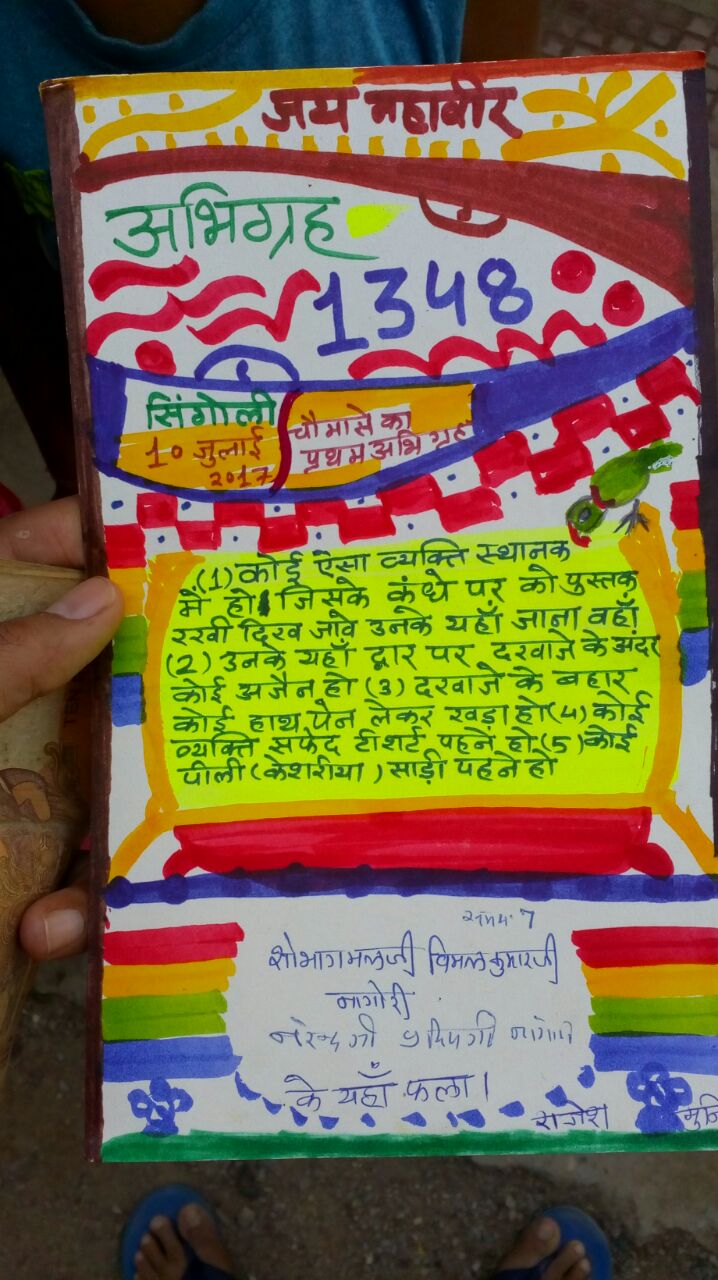 जय महावीर
अभिग्रह
1348
सिंगोली
10 जुलाई
2017
चौमासे का
प्रथम अभिग्रह
(1) कोई ऐसा व्यक्ति स्थानक
में हो। जिसके कंधे पर को पुस्तक
रखी दिख जावे उनके यहाँ जाना वहाँ
(2) उनके यहाँ द्वार पर दरवाजे के अंदर
कोई अजैन हो (3) दरवाजे के बहार
कोई हाथ पेन लेकर खड़ा हो (4) कोई
व्यक्ति सफेद टीशर्ट पहने हो (5) कोई
पीली (केशरीया) साड़ी पहने हो
7
शोभागमलजी विमलकुमारजी
नागोरी
नरेन्द्रजी
के यहाँ फला।
राजेश